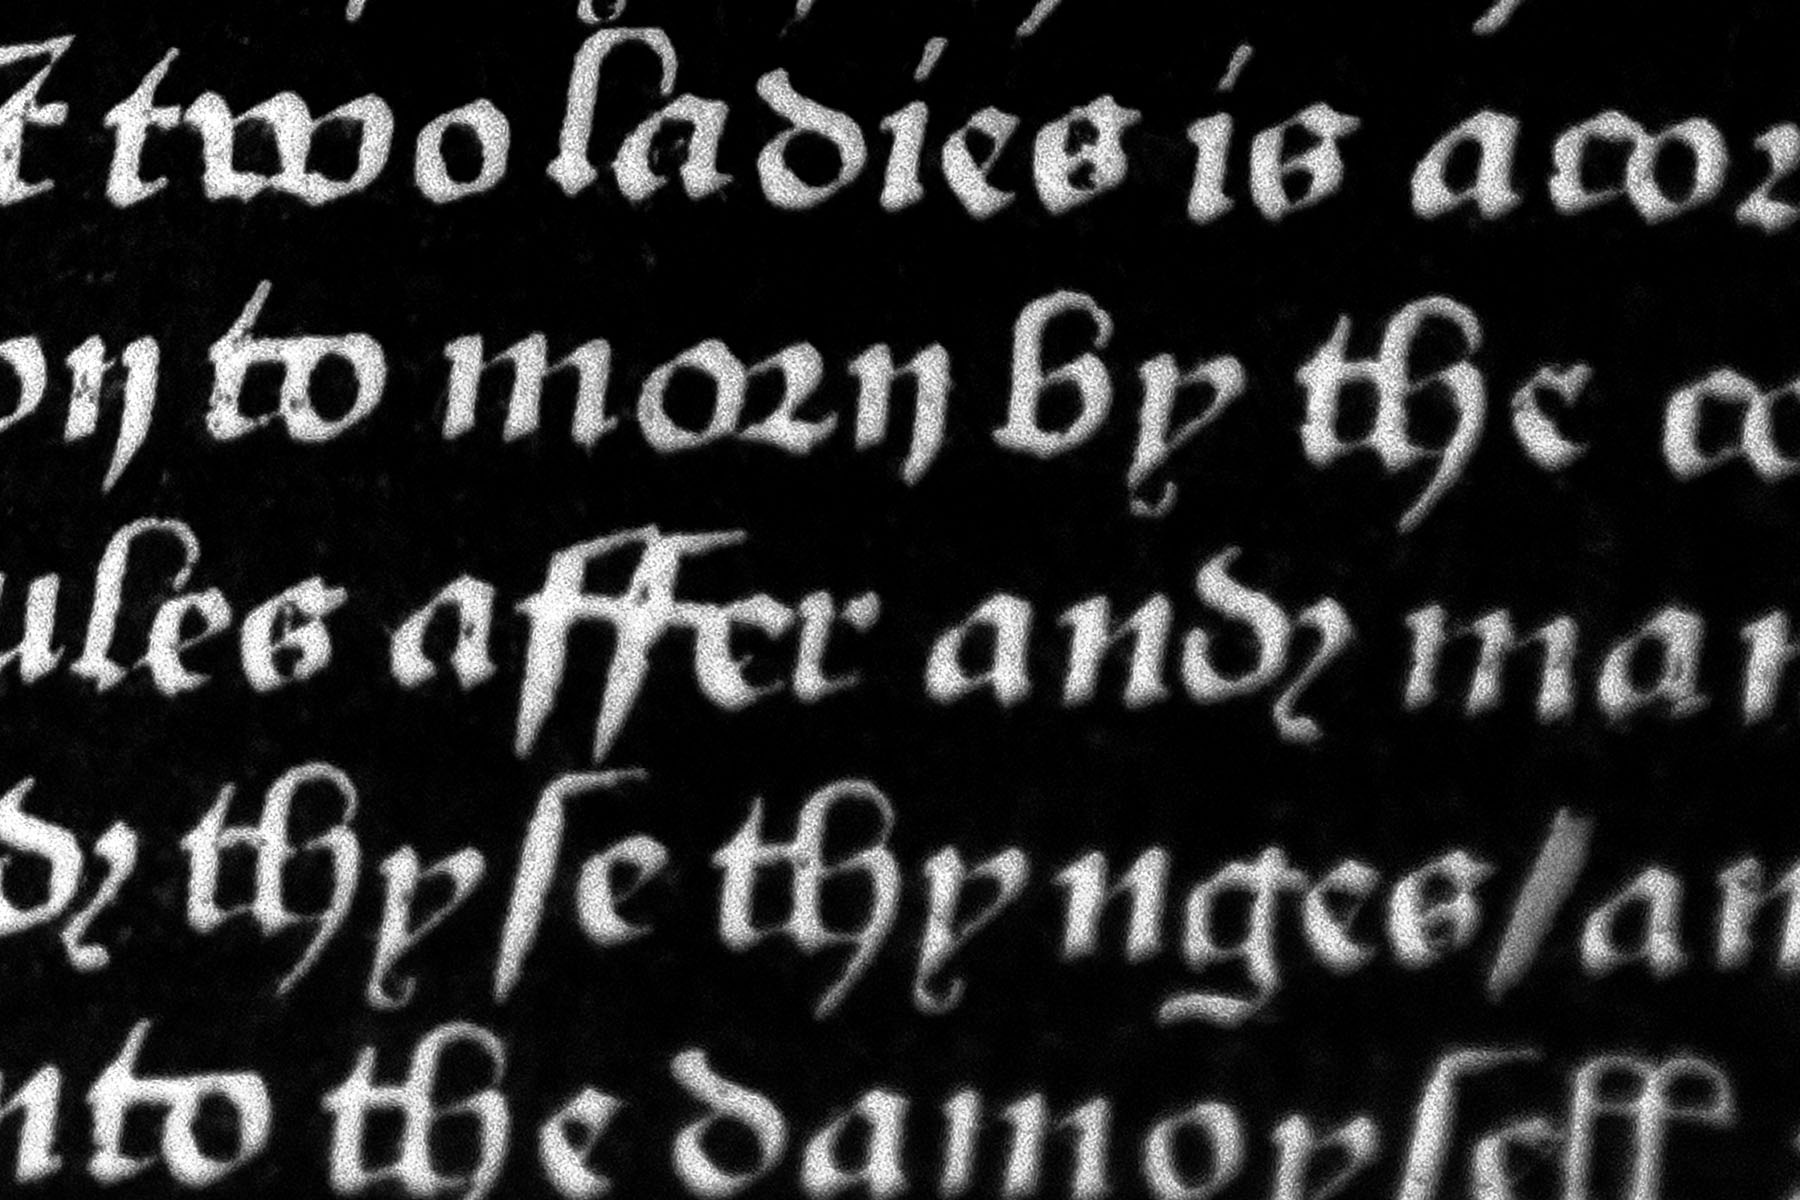 two ladies is acoꝛ
on to moꝛn by the co
ules affer and man
d thyſe thynges/an
nto the damoyſell